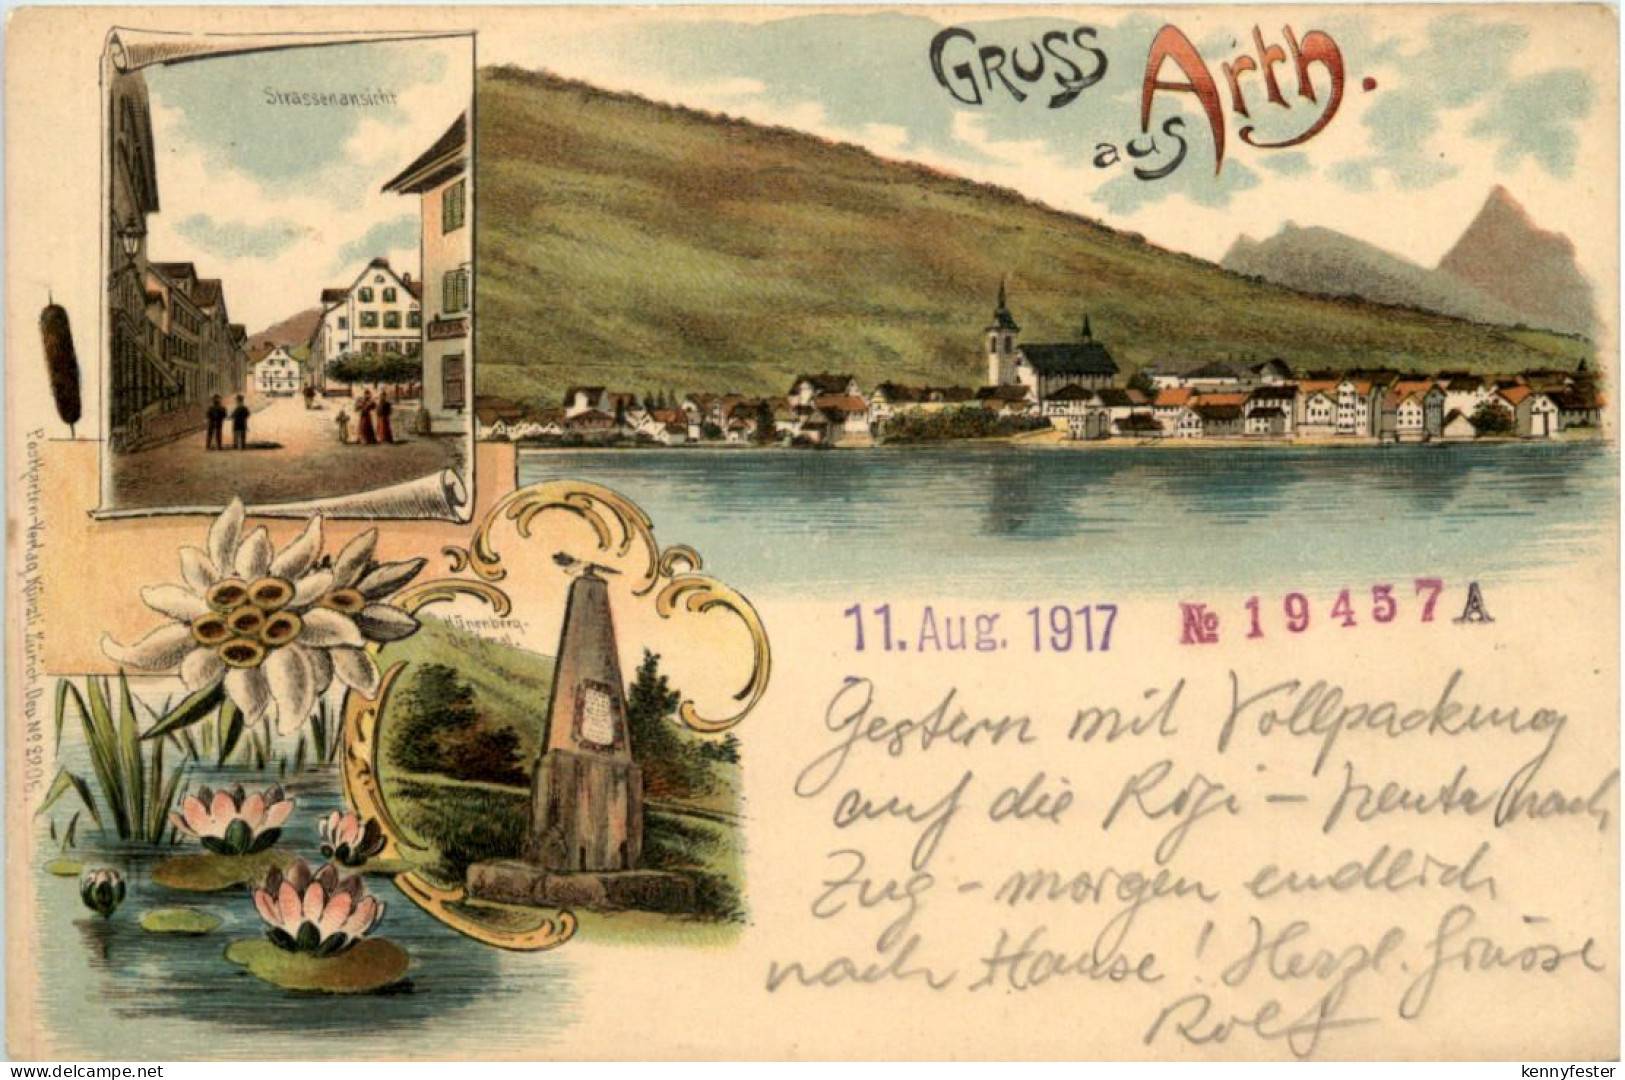 GRUSS
aus Arth.
Strassenansicht
Hünenberg-
Denkmal.
Postkarten-Verlag Künzli, Zürich, Dep. No 2906.
11. Aug. 1917 No 19457 A
Gestern mit Vollpackung
auf die Rigi – heute nach
Zug – morgen endlich
nach Hause! Herzl. Grüsse
Rolf
delcampe.net
kennyfester